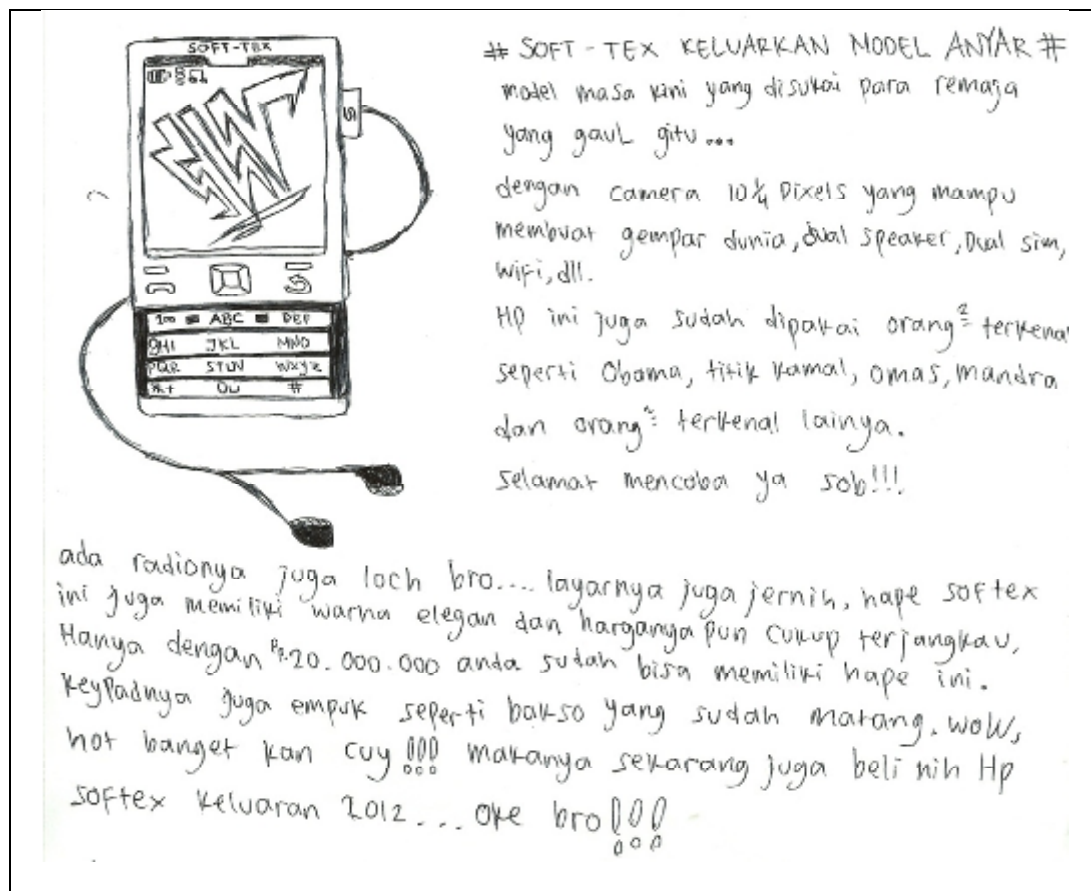 SOFT-TEX
# SOFT - TEX KELUARKAN MODEL ANYAR #
model masa kini yang disukai para remaja
yang gaul gitu...
dengan camera 10 1/4 Pixels yang mampu
membuat gempar dunia, dual speaker, Dual sim,
wifi, dll.
HP ini juga sudah dipakai orang² terkenal
seperti Obama, titik kamal, omas, mandra
dan orang² terkenal lainya.
selamat mencoba ya sob!!!
S
ABC DEF
GHI JKL MNO
PQR STUV WXYZ
*+ 0u #
ada radionya juga loch bro.... layarnya juga jernih, hape softex
ini juga memiliki warna elegan dan harganya pun cukup terjangkau,
Hanya dengan Rp.20.000.000 anda sudah bisa memiliki hape ini.
KeyPadnya juga empuk seperti bakso yang sudah matang. woW,
hot banget kan cuy !!! makanya sekarang juga beli nih Hp
softex keluaran 2012... oke bro !!!